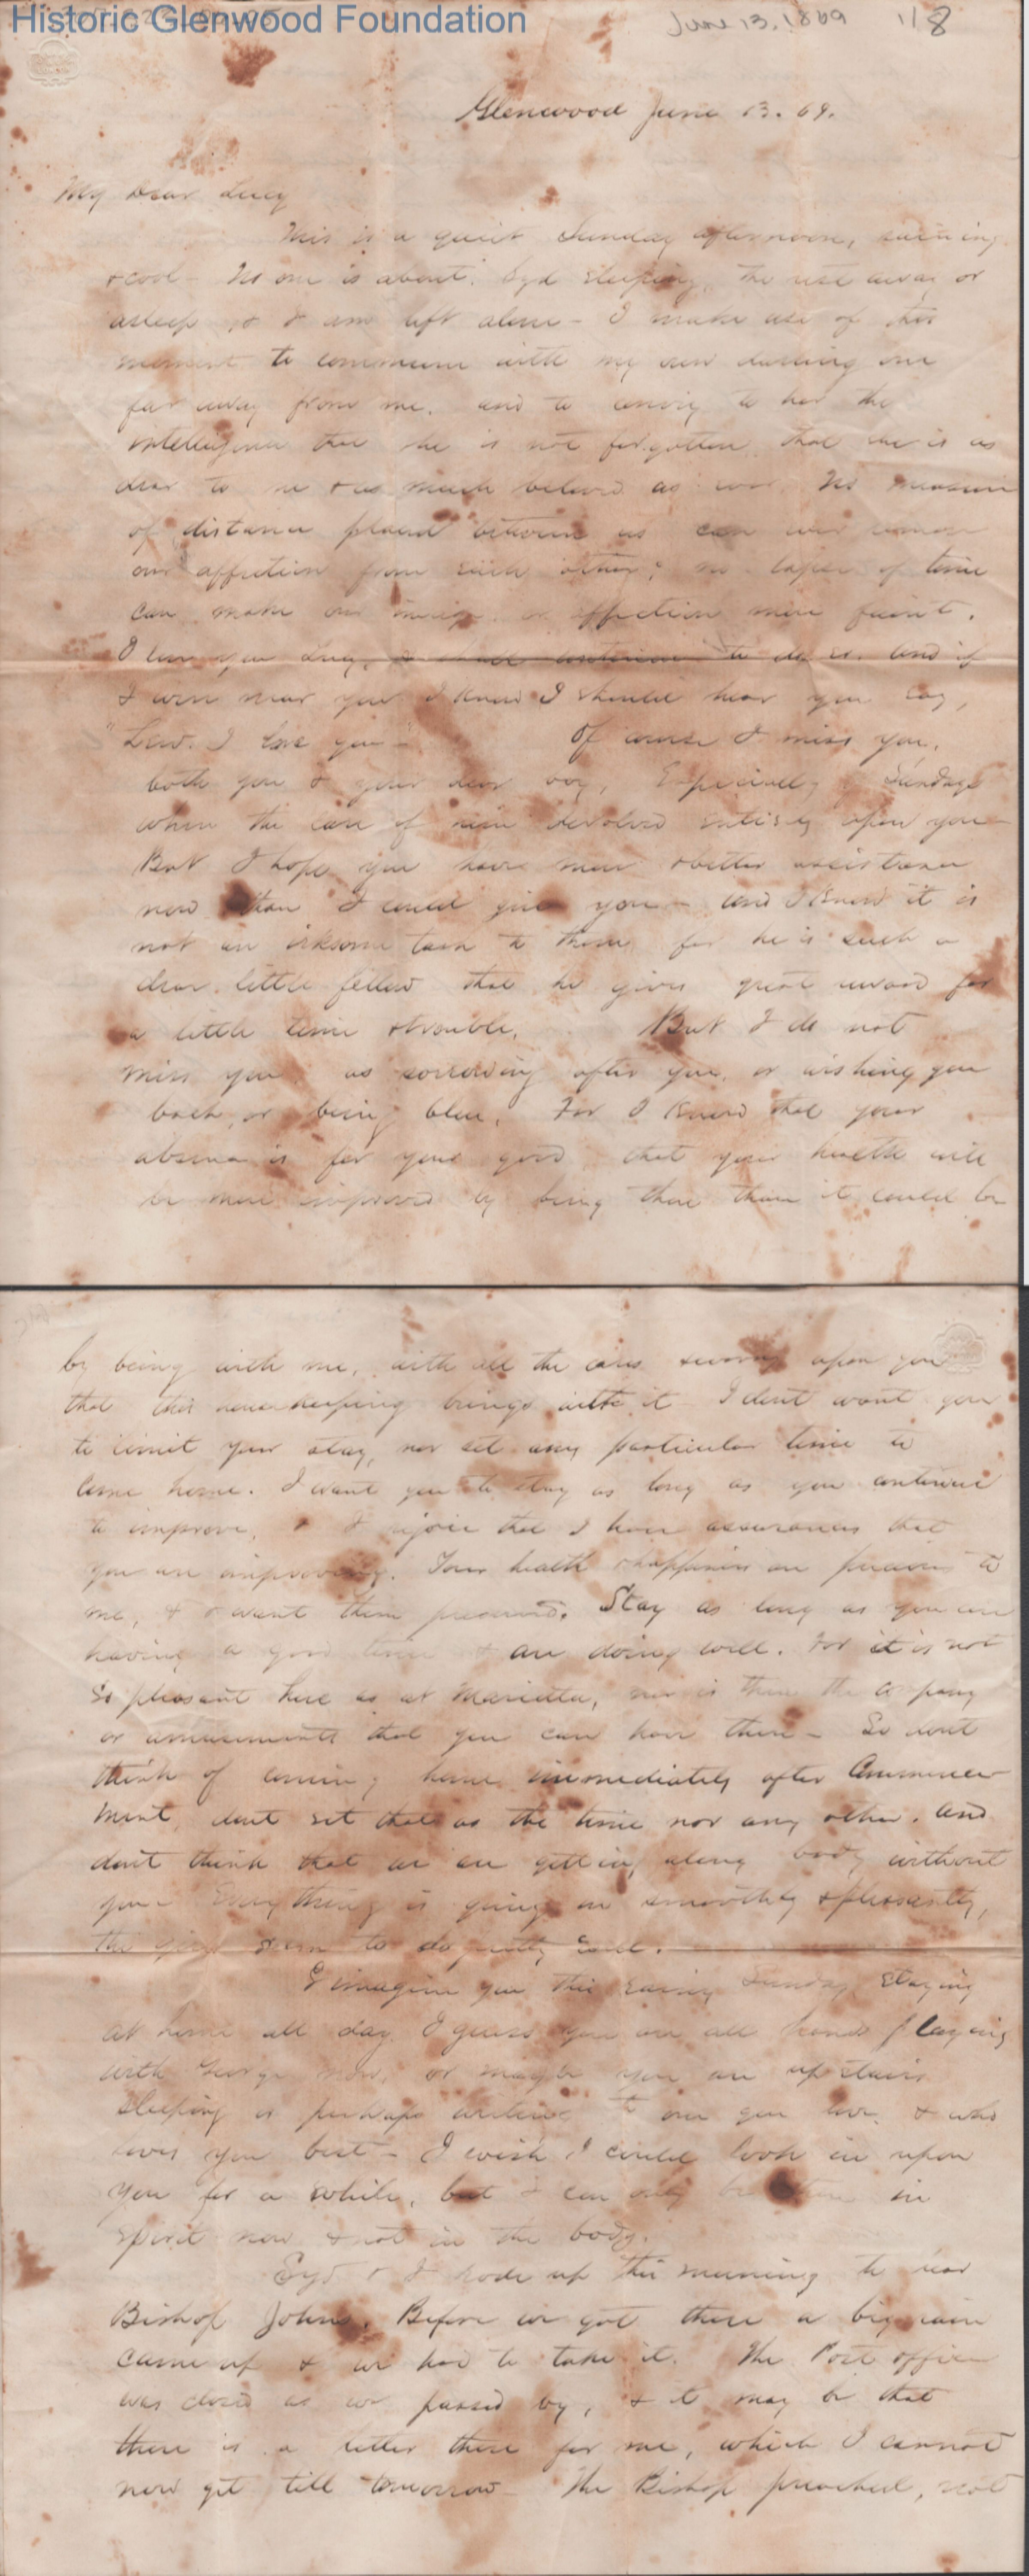 Historic Glenwood Foundation
June 13, 1869 118
Glenwood June 13. 69.
My Dear Lucy
This is a quiet Sunday afternoon, raining
& cool - No one is about. Syd sleeping, the rest away or
asleep, & I am left alone - I make use of this
moment to commune with my own darling one
far away from me. and to convey to her the
intelligence that she is not forgotten, that she is as
dear to me & as much beloved as ever. No measure
of distance placed between us can ever remove
our affection from each other; no lapse of time
can make our image or affection more faint.
I love you Lucy, & shall continue to do so. And if
I were near you I know I should hear you say,
"Lew. I love you -" Of course I miss you,
both you & your dear boy, Especially Sundays
when the care of him devolved entirely upon you -
But I hope you have more & better assistance
now than I could give you - and I know it is
not an irksome task to them, for he is such a
dear little fellow that he gives great reward for
a little time & trouble. But I do not
miss you, as sorrowing after you, or wishing you
back, or being blue. For I know that your
absence is for your good, that your health will
be more improved by being there than it could be
by being with me, with all the cares upon you
that this housekeeping brings with it I dont want you
to limit your stay, nor set any particular time to
come home. I want you to stay as long as you continue
to improve, & I rejoice that I have assurances that
you are improving. Your health & happiness are precious to
me, & I want them preserved. Stay as long as you are
having a good time & are doing well. For it is not
so pleasant here as at Marietta, nor is there the company
or amusements that you can have there - So dont
think of coming home immediately after Commence
ment, dont set that as the time nor any other. And
dont think that we are getting along badly without
you - Everything is going on smoothly & pleasantly,
the girls seem to do pretty well.
I imagine you this rainy Sunday staying
at home all day. I guess you are all hands playing
with George now, or maybe you are up stairs
sleeping or perhaps writing to one you love, & who
loves you best - I wish I could look in upon
you for a while, but I can only be there in
spirit now & not in the body.
Syd & I rode up this morning to hear
Bishop Johns. Before we got there a big rain
came up & we had to take it. The Post office
was closed as we passed by, & it may be that
there is a letter there for me, which I cannot
now get till tomorrow - The Bishop preached, not